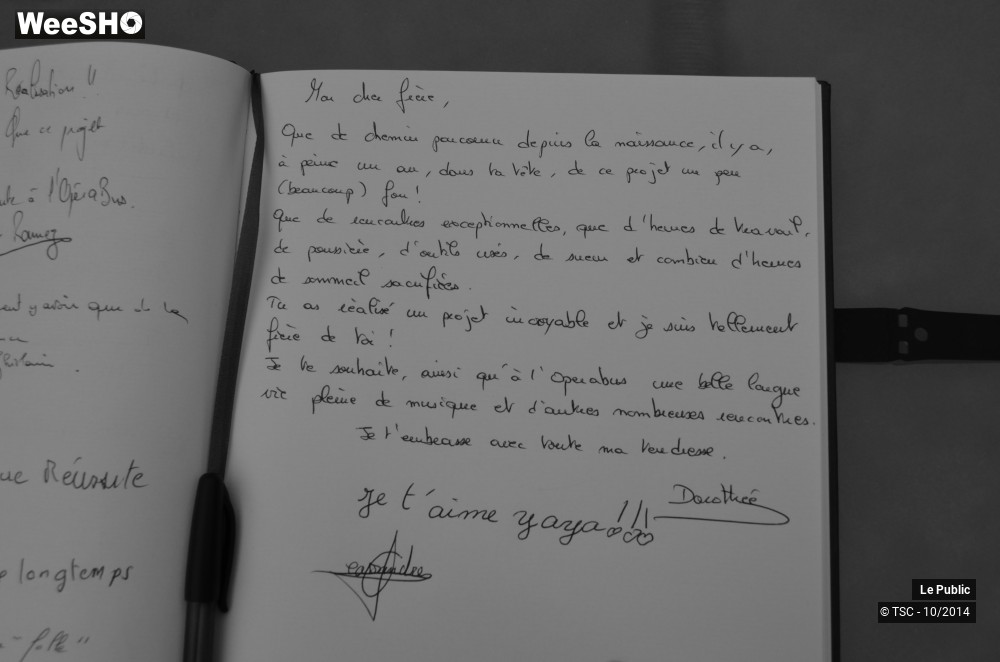 WeeSHO
Réalisation !!
Que ce projet
à l'OpéraBus.
Ramez
que
Réussite
longtemps
folle"
Mon cher frère,
Que de chemin parcouru depuis la naissance, il y a,
à peine un an, dans ta tête, de ce projet un peu
(beaucoup) fou !
Que de rencontres exceptionnelles, que d'heures de travail,
de poussière, d'outils usés, de sueur et combien d'heures
de sommeil sacrifiées.
Tu as réalisé un projet incroyable et je suis tellement
fière de toi !
Je te souhaite, ainsi qu'à l'Operabus une belle longue
vie pleine de musique et d'autres nombreuses rencontres.
Je t'embrasse avec toute ma tendresse.
Dorothée
Je t'aime yaya !!!
Le Public
© TSC - 10/2014